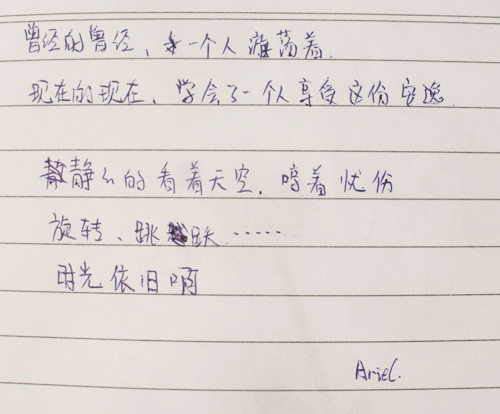 曾经的曾经、一个人游荡着.
现在的现在、学会了一个人享受这份安逸
静静的看着天空.哼着忧伤
旋转、跳跃......
时光依旧啊
Ariel.